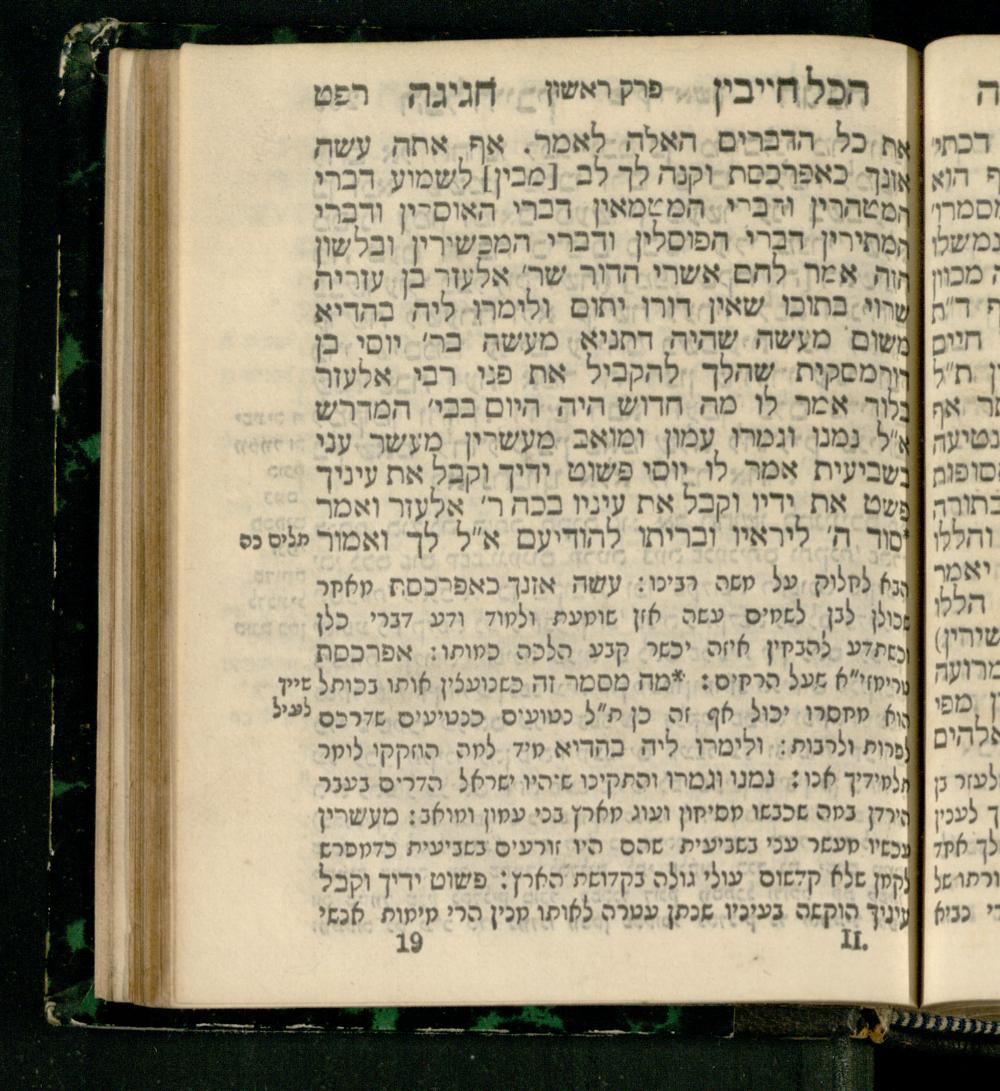 הכל חייבין פרק ראשון חגיגה רפט
את כל הדברים האלה לאמר. אף אתה עשה
אזנך כאפרכסת וקנה לך לב [מבין] לשמוע דברי
המטהרין ודברי המטמאין דברי האוסרין ודברי
המתירין דברי הפוסלין ודברי המכשירין ובלשון
הזה אמר להם אשרי הדור שר׳ אלעזר בן עזריה
שרוי בתוכו שאין דורו יתום ולימרו ליה בהדיא
משום מעשה שהיה דתניא מעשה בר׳ יוסי בן
דורמסקית שהלך להקביל את פני רבי אלעזר
בלוד אמר לו מה חדוש היה היום בבי׳ המדרש
א״ל נמנו וגמרו עמון ומואב מעשרין מעשר עני
בשביעית אמר לו יוסי פשוט ידיך וקבל את עיניך
פשט את ידיו וקבל את עיניו בכה ר׳ אלעזר ואמר
סוד ה׳ ליראיו ובריתו להודיעם א״ל לך ואמור
תלים כס
הבא לחלוק על משה רבינו: עשה אזנך כאפרכסת מאחר
שכולן לבן לשמים עשה אזן שומעת ולמוד ודע דברי כלן
וכשתדע להבחין איזה יכשר קבע הלכה כמותו: אפרכסת
טרימזי״א שעל הרחים: *מה מסמר זה כשנועצין אותו בכותל
שייך
לעיל
הוא מחסרו יכול אף זה כן ת״ל נטועים כנטיעים שדרכם
לפרות ולרבות: ולימרו ליה בהדיא מיד למה הוזקקו לומר
תלמידיך אנו: נמנו וגמרו והתקינו שיהיו ישראל הדרים בעבר
הירדן במה שכבשו מסיחון ועוג מארץ בני עמון ומואב: מעשרין
עכשיו מעשר עני בשביעית שהם היו זורעים בשביעית כדמפרש
לקמן שלא קדשום עולי גולה בקדושת הארץ: פשוט ידיך וקבל
עיניך הוקשה בעיניו שנתן עטרה לאותו מנין הרי מימות אנשי
II. 19
ה
דכתי׳